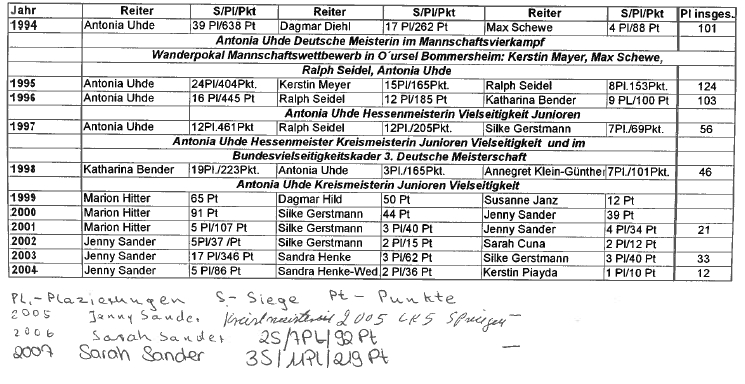 Jahr Reiter S/Pl/Pkt Reiter S/Pl/Pkt Reiter S/Pl/Pkt Pl insges.
1994 Antonia Uhde 39 Pl/638 Pt Dagmar Diehl 17 Pl/262 Pt Max Schewe 4 Pl/88 Pt 101
Antonia Uhde Deutsche Meisterin im Mannschaftsvierkampf
Wanderpokal Mannschaftswettbewerb in O´ursel Bommersheim: Kerstin Mayer, Max Schewe,
Ralph Seidel, Antonia Uhde
1995 Antonia Uhde 24Pl/404Pkt. Kerstin Meyer 15Pl/165Pkt. Ralph Seidel 8Pl.153Pkt. 124
1996 Antonia Uhde 16 Pl/445 Pt Ralph Seidel 12 Pl/185 Pt Katharina Bender 9 PL/100 Pt 103
Antonia Uhde Hessenmeisterin Vielseitigkeit Junioren
1997 Antonia Uhde 12Pl.461Pkt Ralph Seidel 12Pl./205Pkt. Silke Gerstmann 7Pl./69Pkt. 56
Antonia Uhde Hessenmeister Kreismeisterin Junioren Vielseitigkeit und im
Bundesvielseitigkeitskader 3. Deutsche Meisterschaft
1998 Katharina Bender 19Pl./223Pkt. Antonia Uhde 3Pl./165Pkt. Annegret Klein-Günther 7Pl./101Pkt. 46
Antonia Uhde Kreismeisterin Junioren Vielseitigkeit
1999 Marion Hitter 65 Pt Dagmar Hild 50 Pt Susanne Janz 12 Pt
2000 Marion Hitter 91 Pt Silke Gerstmann 44 Pt Jenny Sander 39 Pt
2001 Marion Hitter 5 Pl/107 Pt Silke Gerstmann 3 Pl/40 Pt Jenny Sander 4 Pl/34 Pt 21
2002 Jenny Sander 5Pl/37 /Pt Silke Gerstmann 2 Pl/15 Pt Sarah Cuna 2 Pl/12 Pt
2003 Jenny Sander 17 Pl/346 Pt Sandra Henke 3 Pl/62 Pt Silke Gerstmann 3 Pl/40 Pt 33
2004 Jenny Sander 5 Pl/86 Pt Sandra Henke-Wed 2 Pl/36 Pt Kerstin Piayda 1 Pl/10 Pt 12
Pl.-Plazierungen S-Siege Pt-Punkte
2005 Jenny Sander Kreismeisterin 2005 LK5 Springen
2006 Sarah Sander 2S/7Pl/92 Pt
2007 Sarah Sander 3S/11Pl/219 Pt